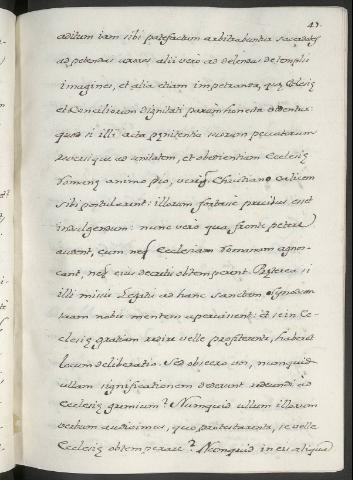 43.
aditum iam sibi patefactum arbitrabuntur sacerdotes
ad petendas uxores alii vero ad delendas de templis
imagines, et alia etiam impetranda, quę Eclesię
et Conciliorum dignitati parum honesta videntur.
quod si illi acta pęnitentia suorum peccatorum
reversique ad unitatem, et obedientiam Ecclesię
Romanę animo pio, vereque Christiano calicem
sibi postularent: illorum fortasse precibus esset
indulgendum: nunc vero qua fronte petere
audent, cum neque Ecclesiam Romanam agnos-
cant, neque eius decretis obtemperent. Pręterea si
illi missis Legatis ad hanc sanctam Synodum
suam nobis mentem aperuissent: et se in Ec-
clesię gratiam redire velle profiterentur, haberet
locum deliberatio. Sed obsecro vos, numquid
ullam significationem dederunt redeundi ad
Ecclesię gremium? Numquid ullum illorum
verbum audivimus, quo protestarentur, se velle
Ecclesię obtemperare? Numquid in eis aliqua